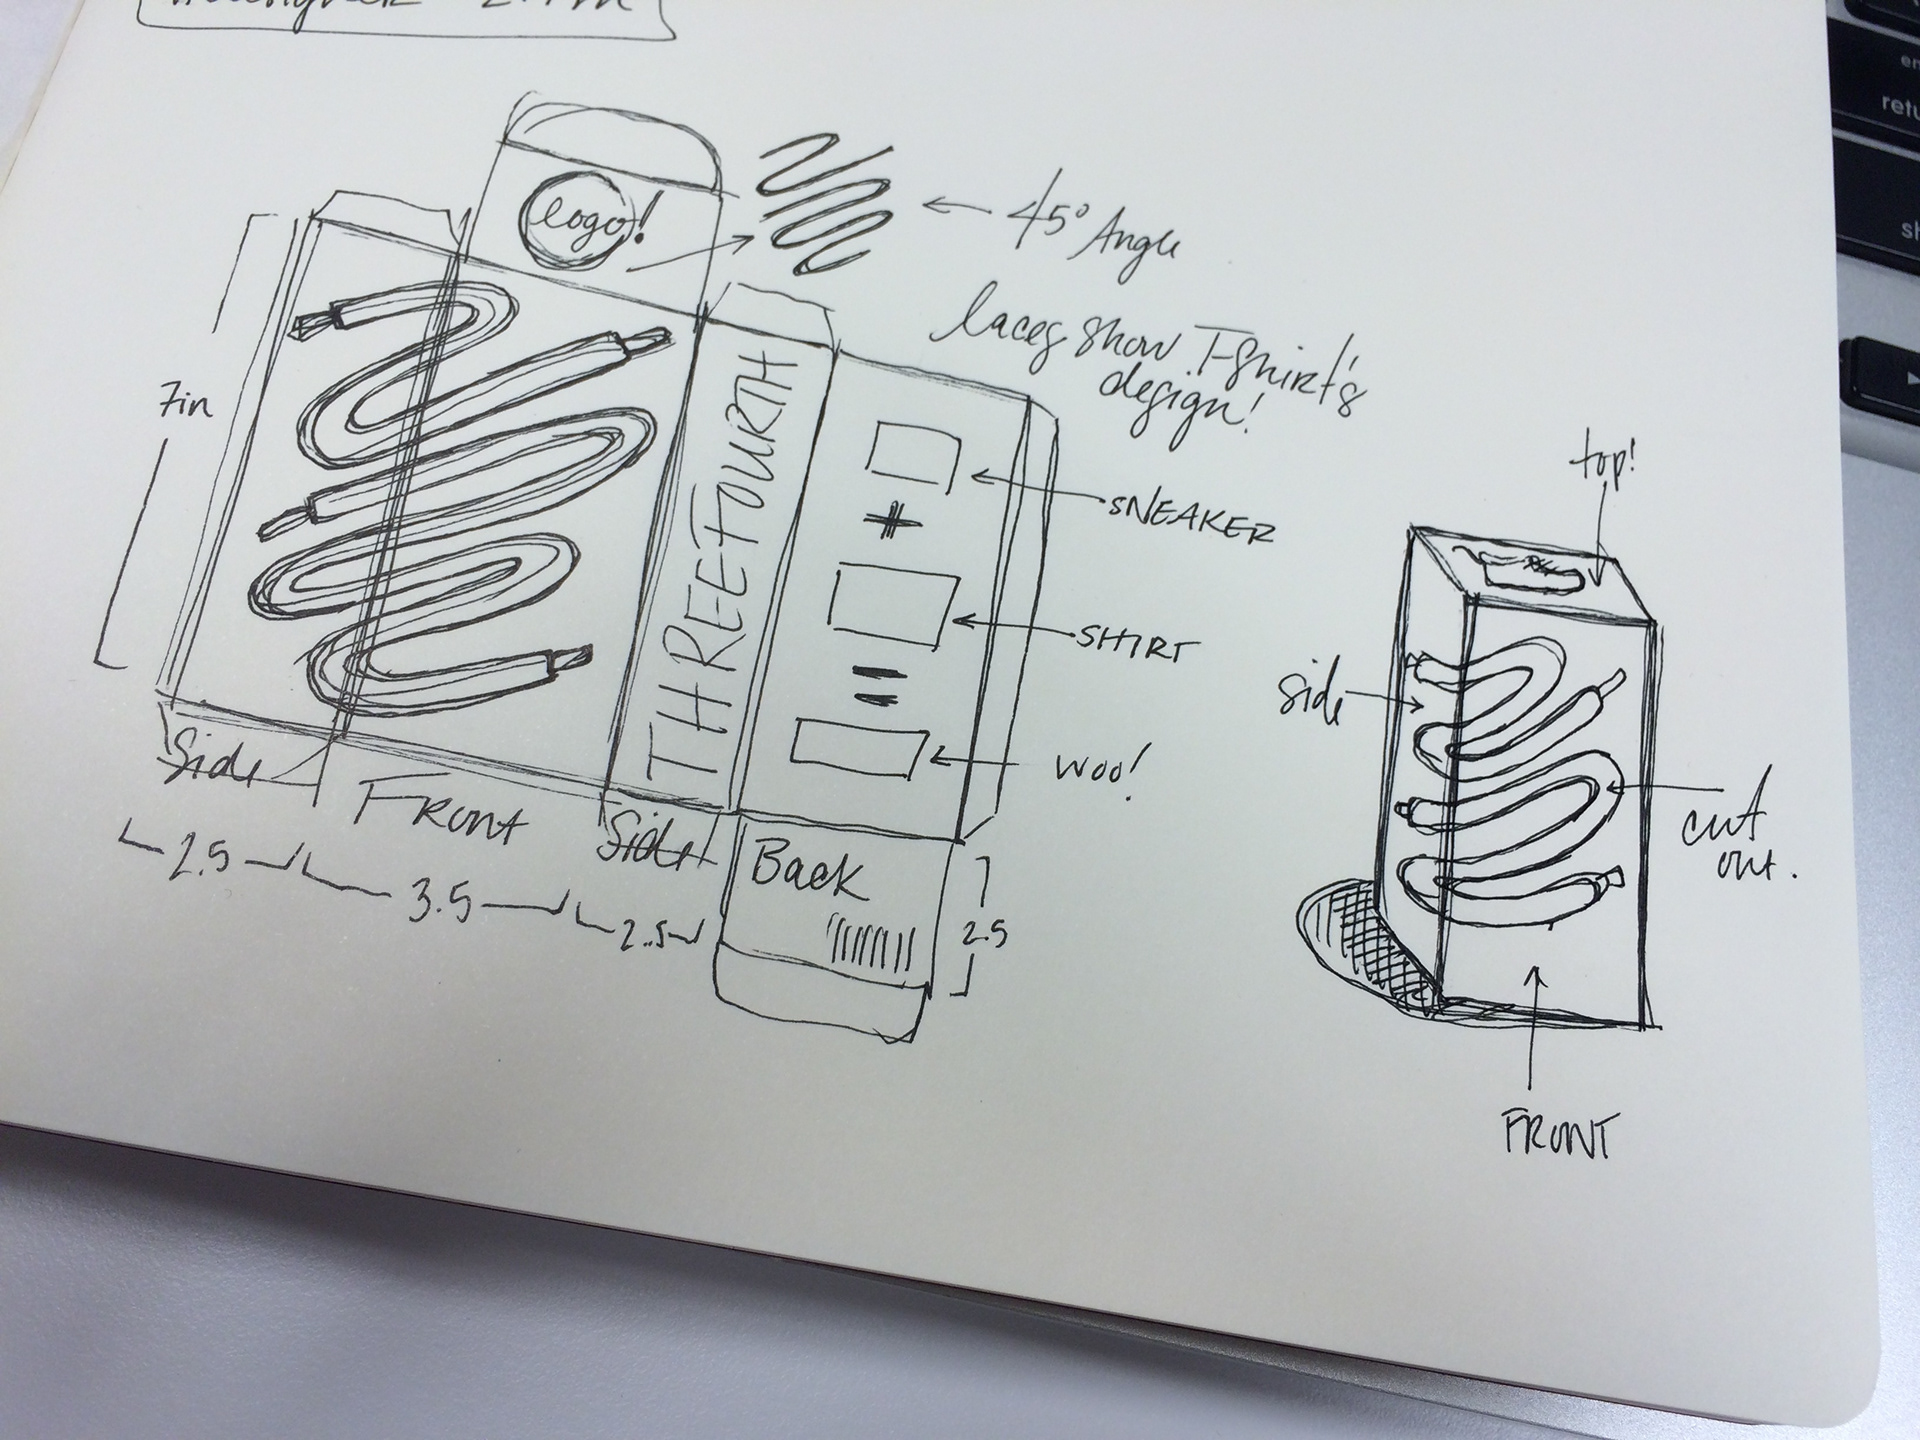 logo!
45° Angle
laces show T-Shirt's
design!
7in
THREEFOURTH
SNEAKER
+
SHIRT
=
woo!
Side
Front
Side
Back
2.5
3.5
2.5
2.5
top!
side
cut
out.
FRONT
return